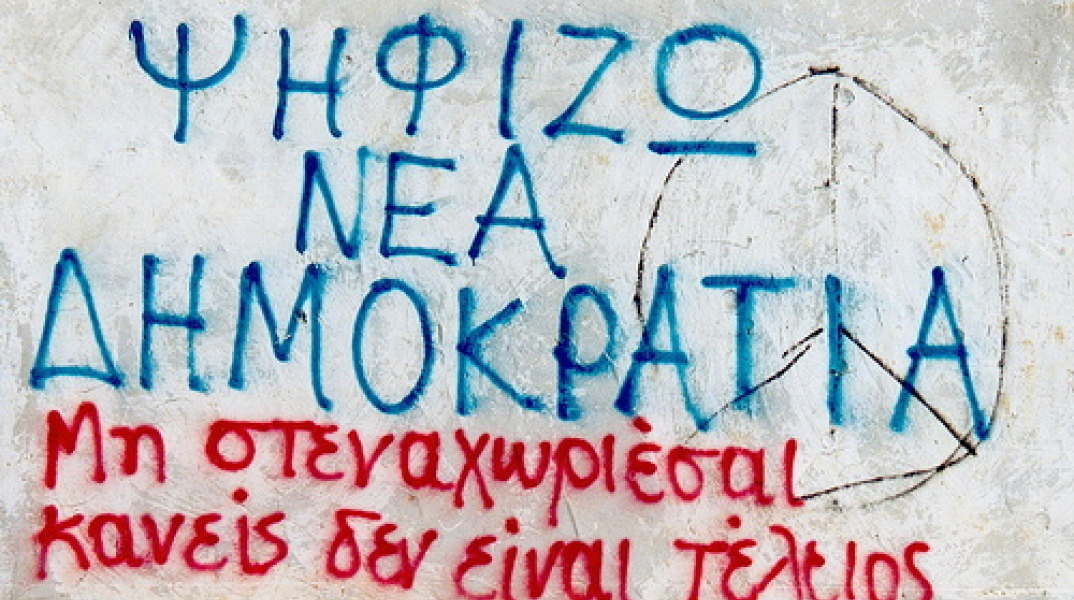 ΨΗΦΙΖΩ
ΝΕΑ
ΔΗΜΟΚΡΑΤΙΑ
Μη στεναχωριέσαι
κανείς δεν είναι τέλειος